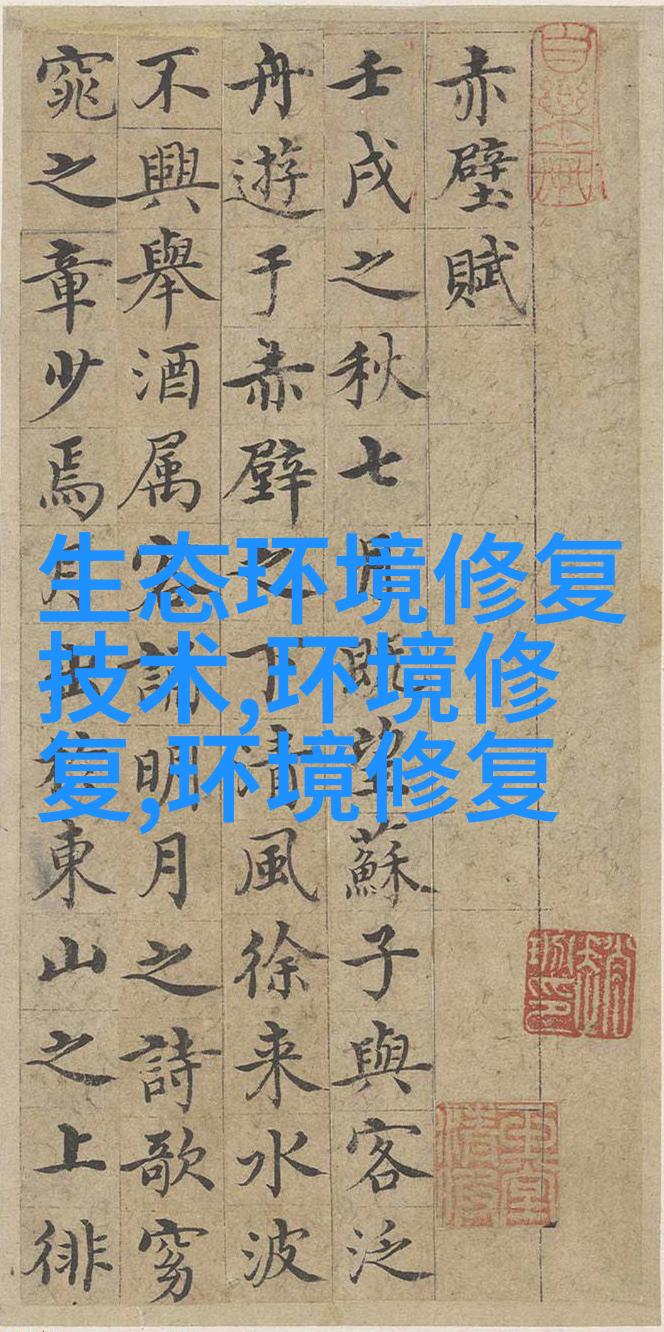 赤壁賦
壬戌之秋七月既望蘇子與客泛
舟遊于赤壁之下清風徐来水波
不興舉酒属客誦明月之詩歌窈
窕之章少焉月出於東山之上徘
生态环境修复
技术,环境修
复,环境修复